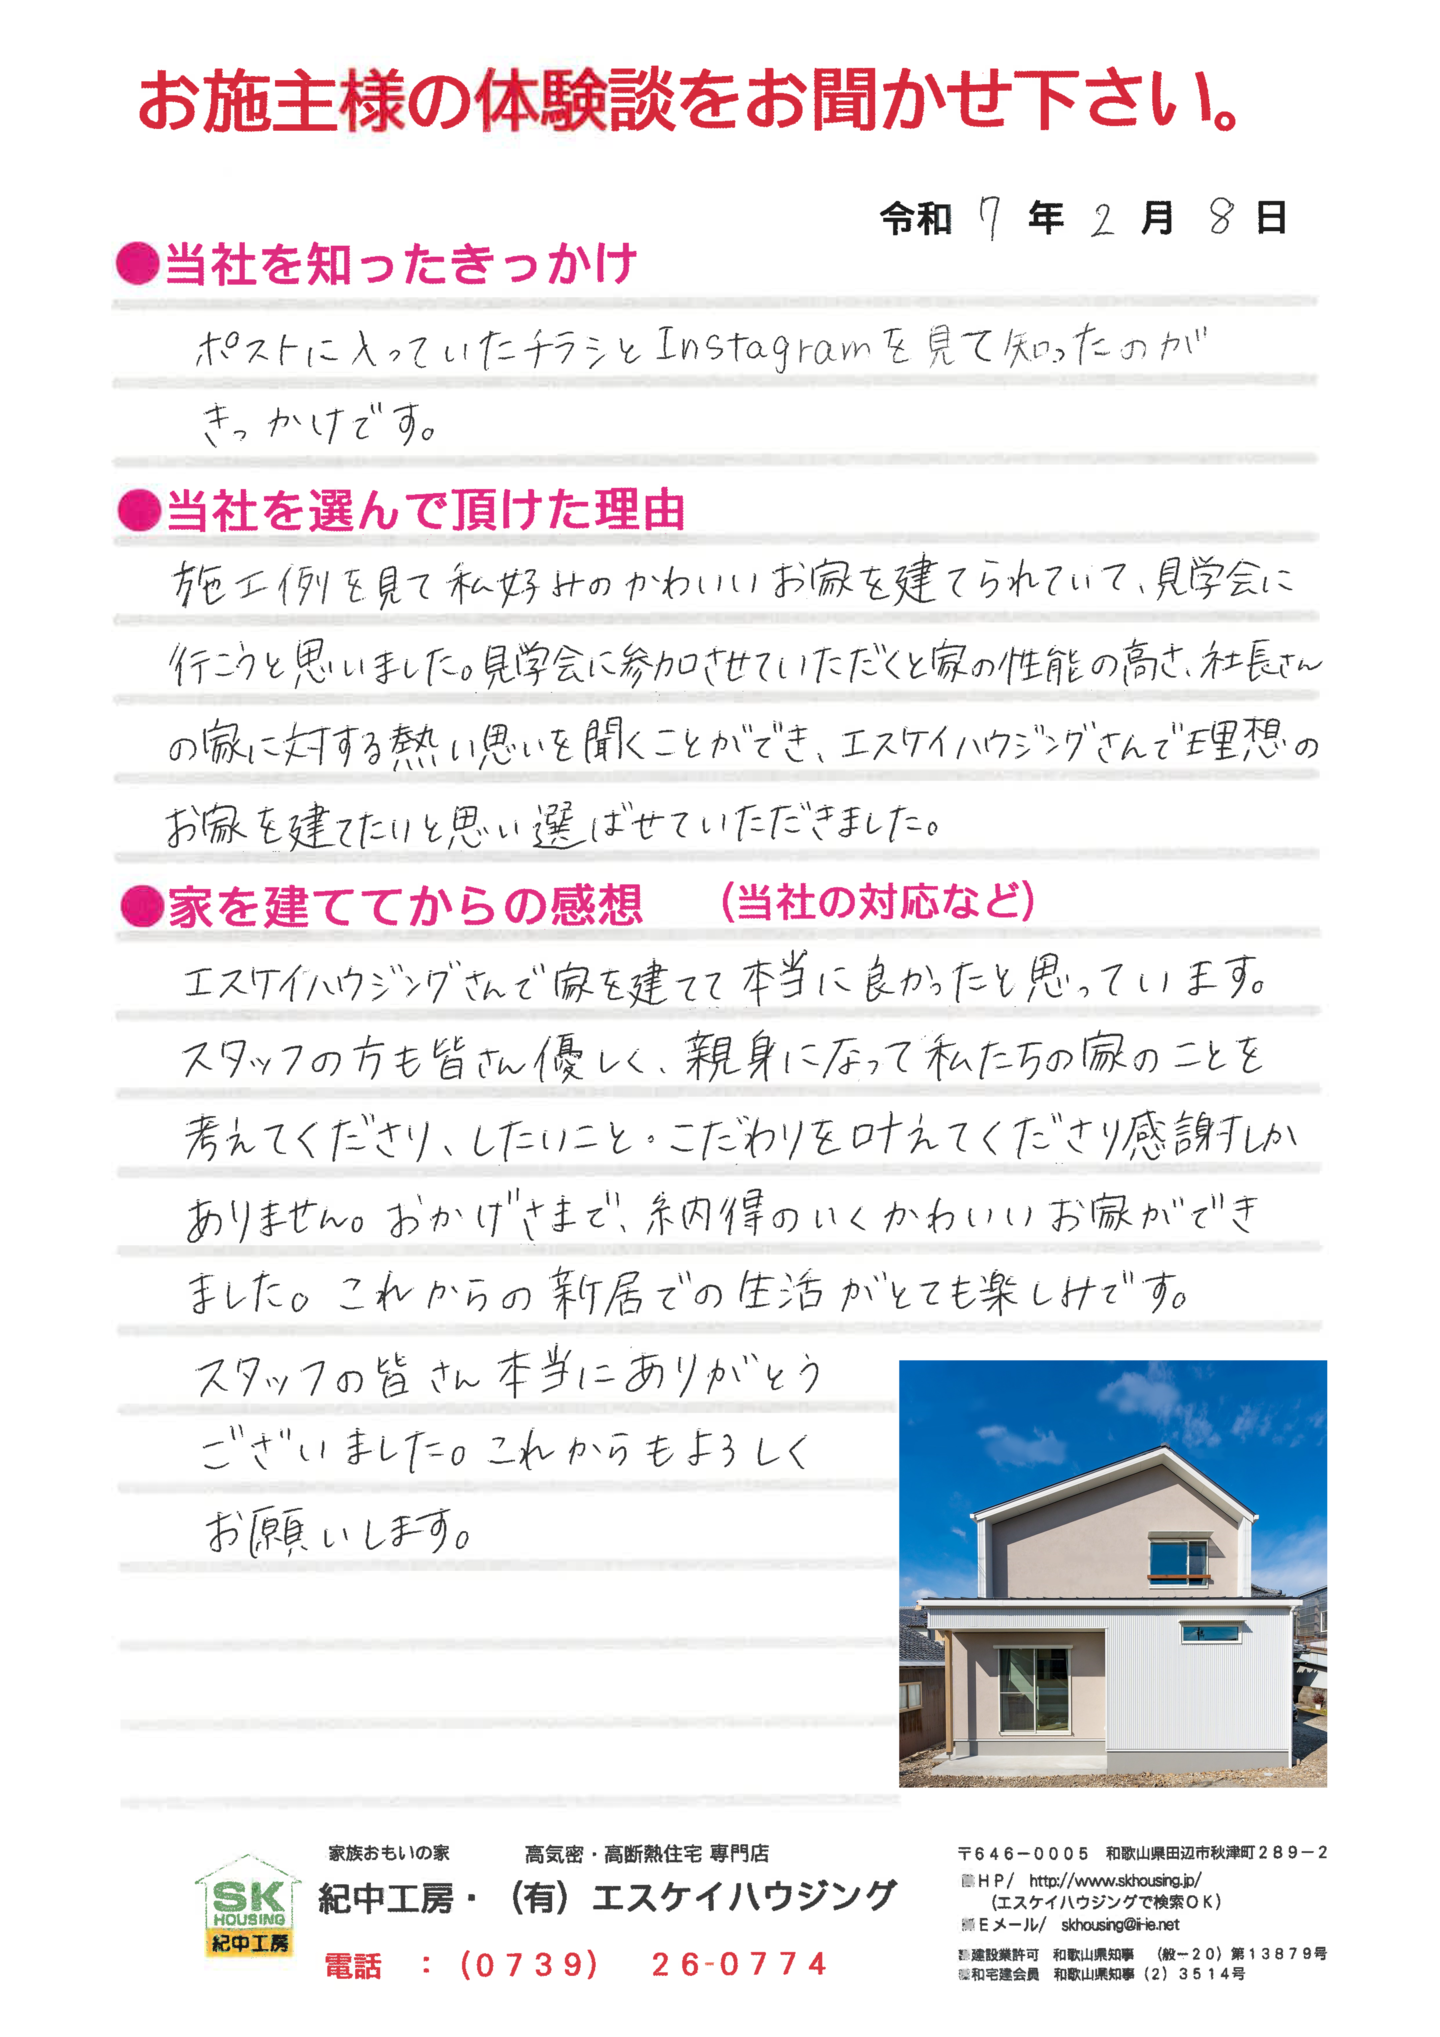 お施主様の体験談をお聞かせ下さい。
令和 7 年 2 月 8 日
●当社を知ったきっかけ
ポストに入っていたチラシとInstagramを見て知ったのが
きっかけです。
●当社を選んで頂けた理由
施工例を見て私好みのかわいいお家を建てられていて、見学会に
行こうと思いました。見学会に参加させていただくと家の性能の高さ、社長さん
の家に対する熱い思いを聞くことができ、エスケイハウジングさんで理想の
お家を建てたいと思い選ばせていただきました。
●家を建ててからの感想 (当社の対応など)
エスケイハウジングさんで家を建てて本当に良かったと思っています。
スタッフの方も皆さん優しく、親身になって私たちの家のことを
考えてくださり、したいこと・こだわりを叶えてくださり感謝しか
ありません。おかげさまで、納得のいくかわいいお家ができ
ました。これからの新居での生活がとても楽しみです。
スタッフの皆さん本当にありがとう
ございました。これからもよろしく
お願いします。
家族おもいの家 高気密・高断熱住宅 専門店
SK
HOUSING
紀中工房
紀中工房・(有)エスケイハウジング
電話 :(0739) 26-0774
〒646-0005 和歌山県田辺市秋津町289-2
HP/ http://www.skhousing.jp/
(エスケイハウジングで検索OK)
Eメール/ skhousing@i-ie.net
建設業許可 和歌山県知事 (般-20)第13879号
和宅建会員 和歌山県知事(2)3514号